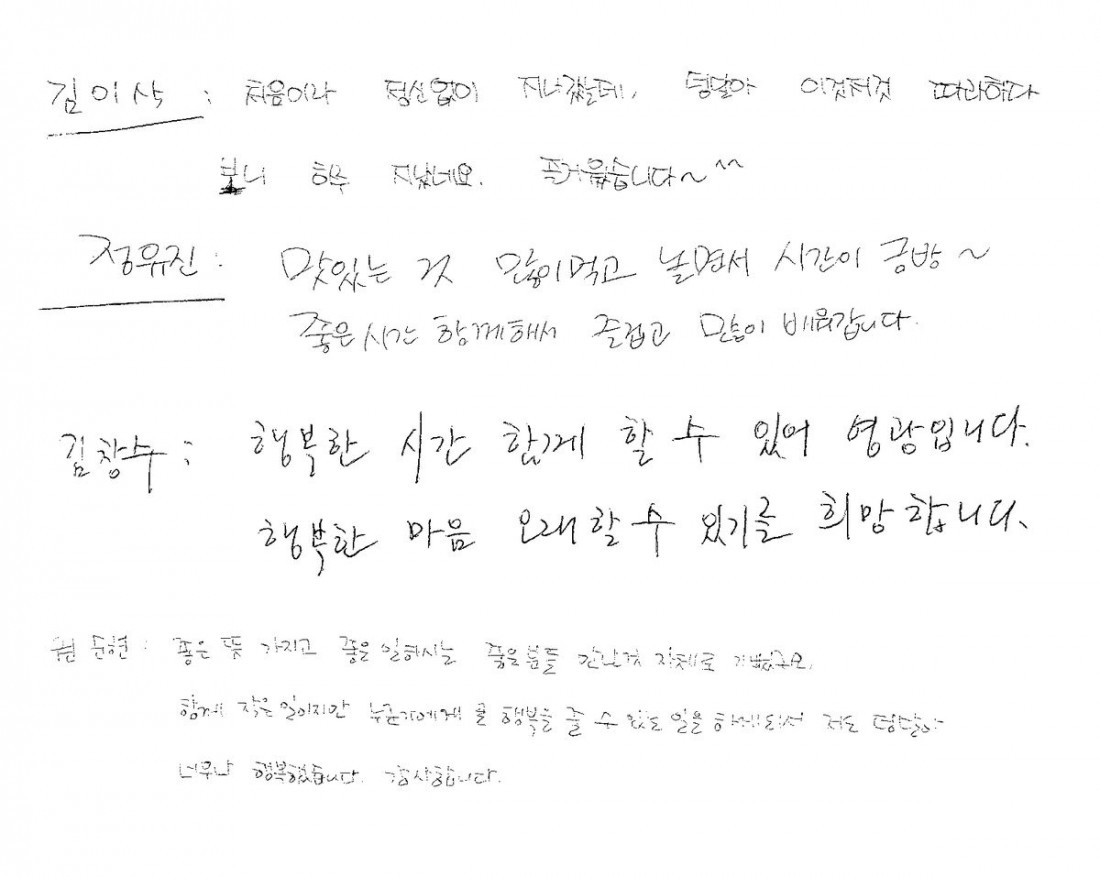 김이삭 : 처음이라 정신없이 지나갔는데, 덩달아 이것저것 따라하다
보니 하루 지났네요. 즐거웠습니다~^^
정유진 : 맛있는 것 많이먹고 놀면서 시간이 금방~
좋은시간 함께해서 즐겁고 많이 배워갑니다.
김창수 : 행복한 시간 함께 할 수 있어 영광입니다.
행복한 마음 오래할 수 있기를 희망합니다.
원문현 : 좋은 뜻 가지고 좋은 일하시는 좋은분들 만난것 자체로 기뻤구요,
함께 작은일이지만 누군가에게 행복을 줄 수 있는 일을 하게되서 저도 덩달아
너무나 행복했습니다. 감사합니다.